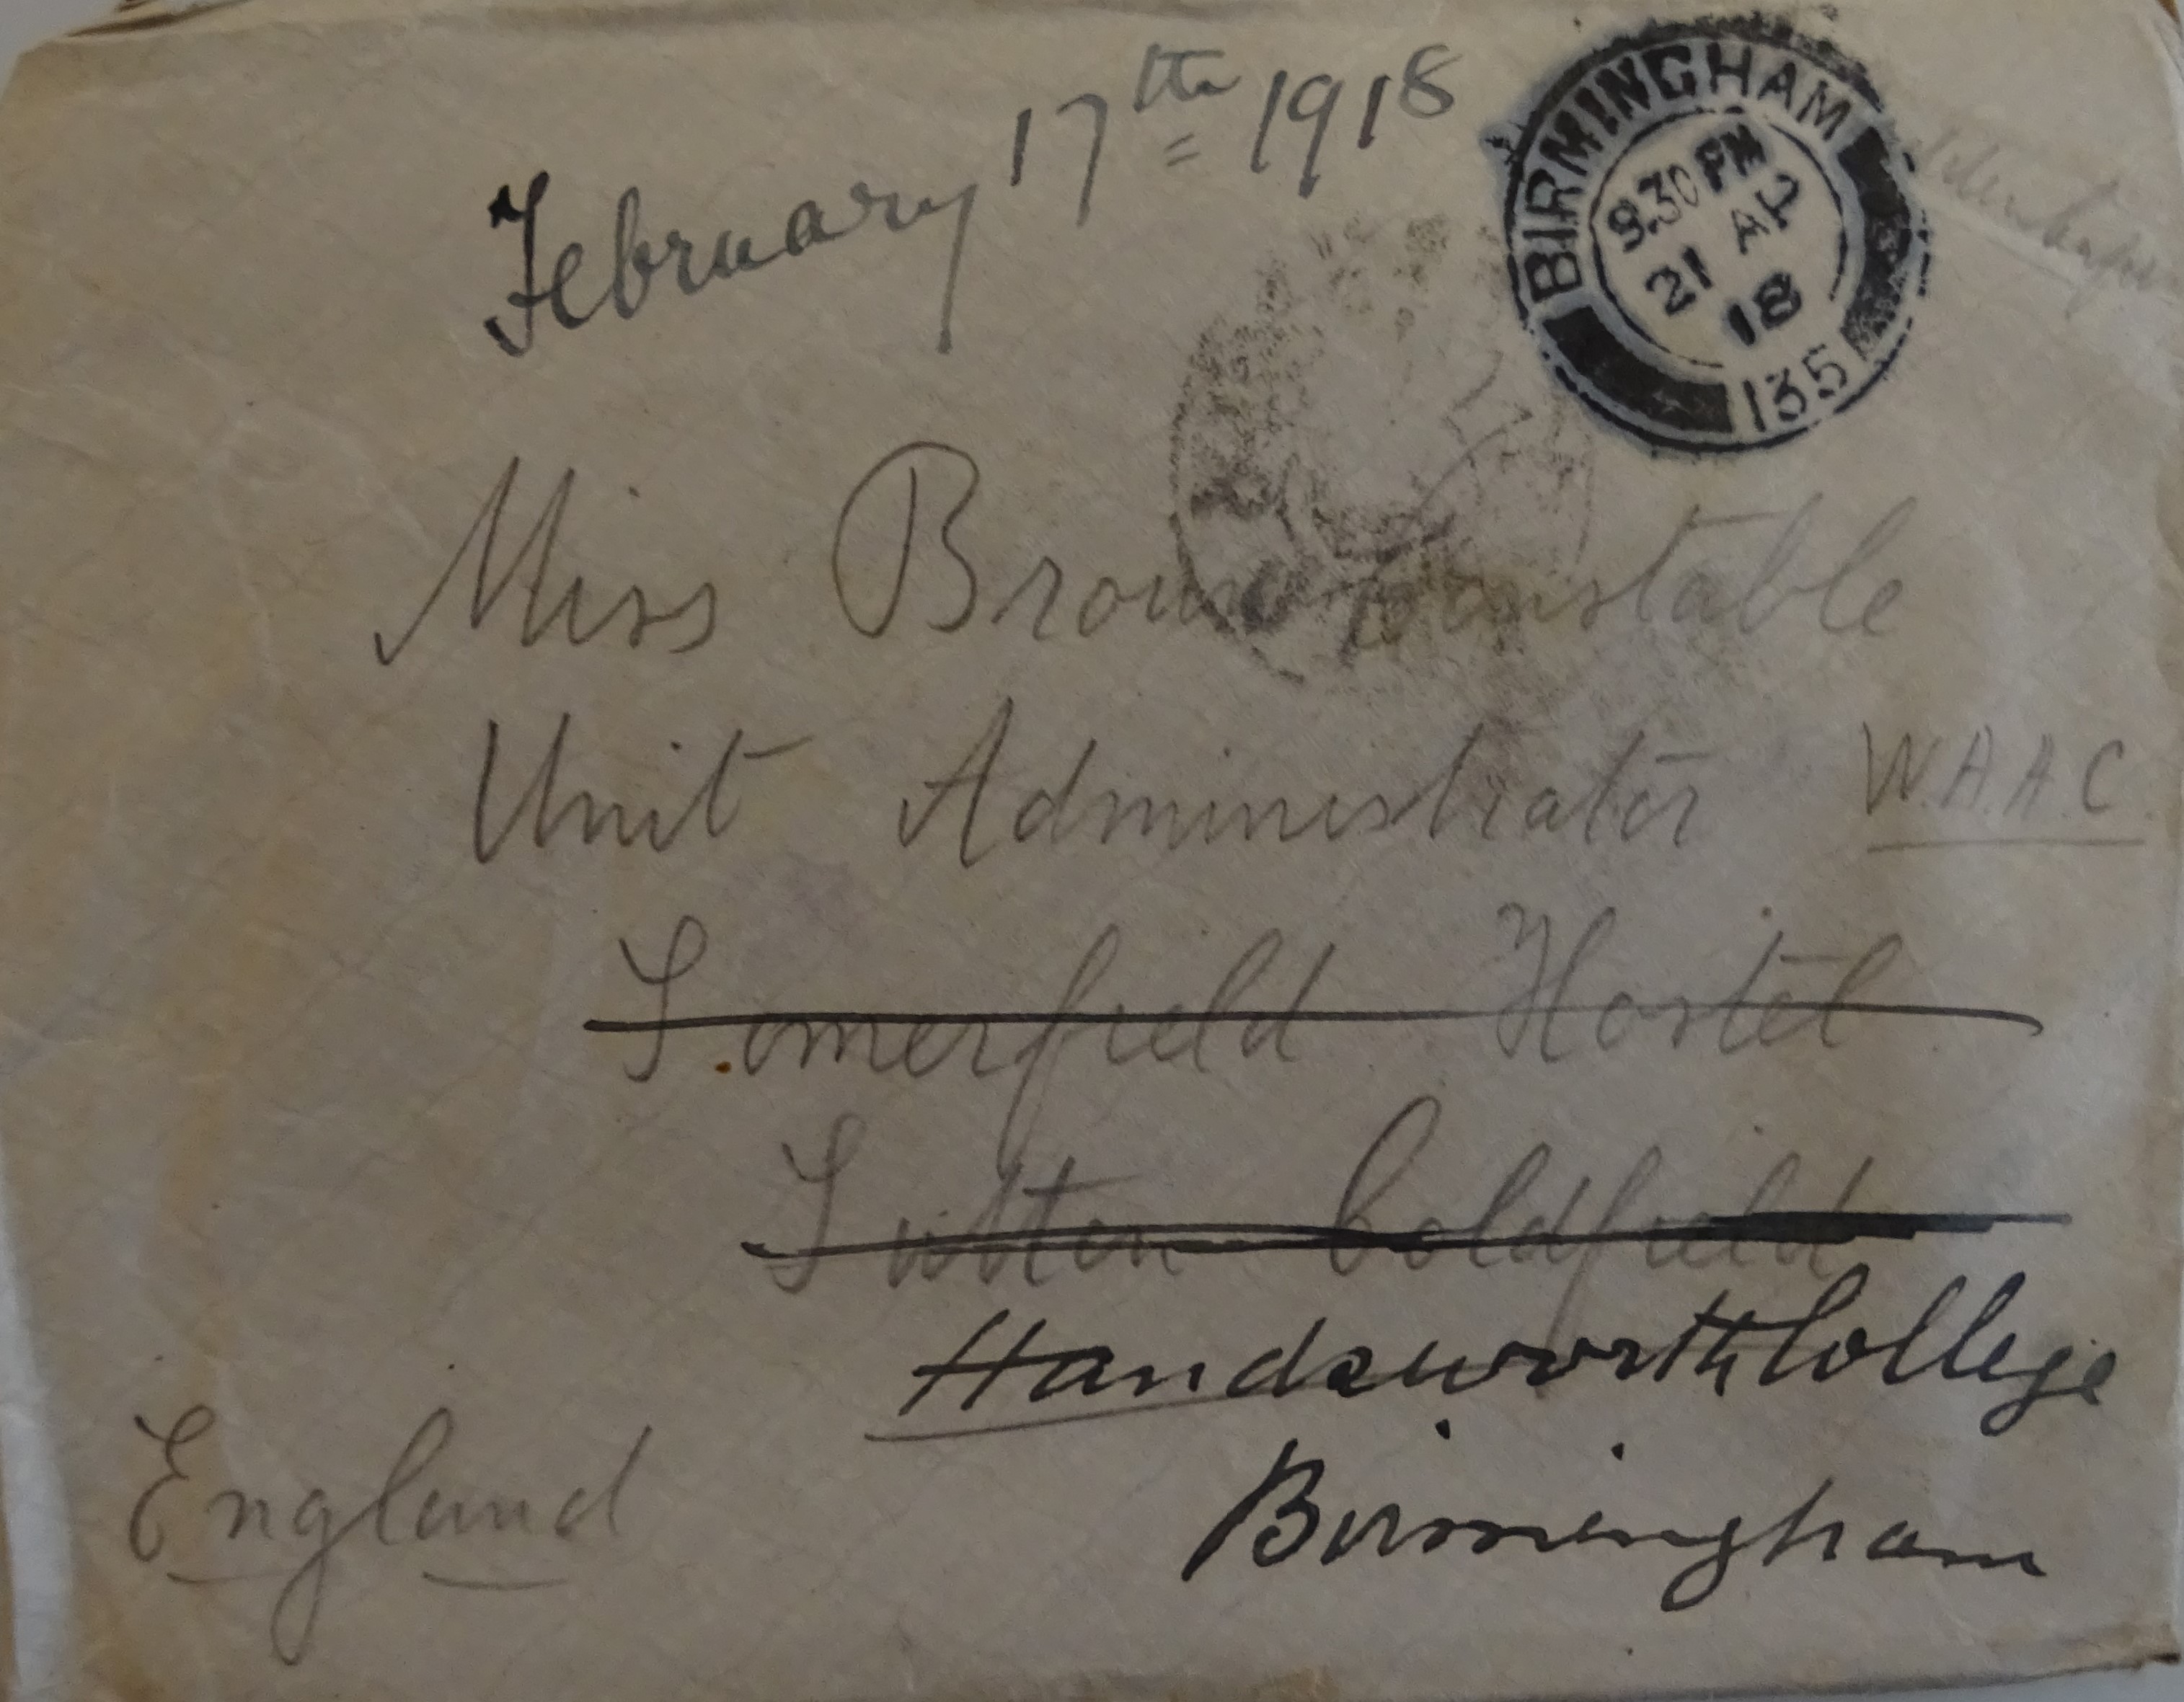 February 17th 1918
BIRMINGHAM
9.30 PM
21 AP
18
135
Miss Brown Constable
Unit Administrator W.A.A.C.
Somerfield Hostel
Sutton Coldfield
Handsworth College
England
Birmingham